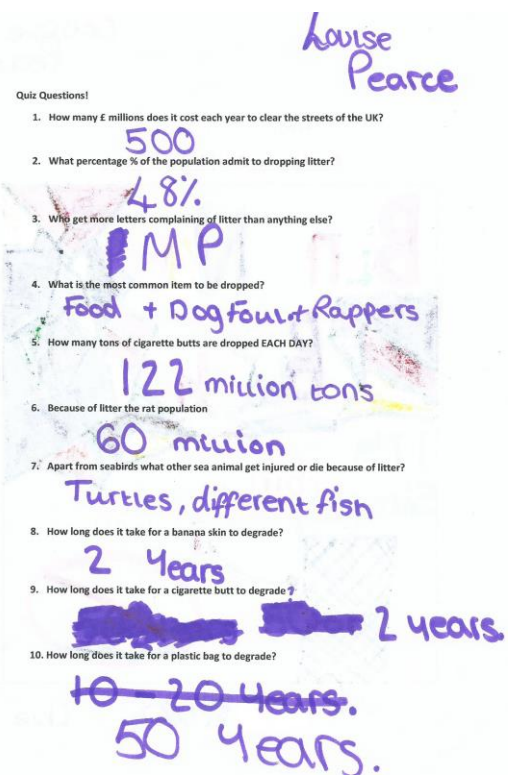 Louise
Pearce
Quiz Questions!
1. How many £ millions does it cost each year to clear the streets of the UK?
500
2. What percentage % of the population admit to dropping litter?
48%
3. Who get more letters complaining of litter than anything else?
MP
4. What is the most common item to be dropped?
Food + Dog Foul + Rappers
5. How many tons of cigarette butts are dropped EACH DAY?
122 million tons
6. Because of litter the rat population
60 million
7. Apart from seabirds what other sea animal get injured or die because of litter?
Turtles, different fish
8. How long does it take for a banana skin to degrade?
2 Years
9. How long does it take for a cigarette butt to degrade?
2 years.
10. How long does it take for a plastic bag to degrade?
10 - 20 Years.
50 Years.